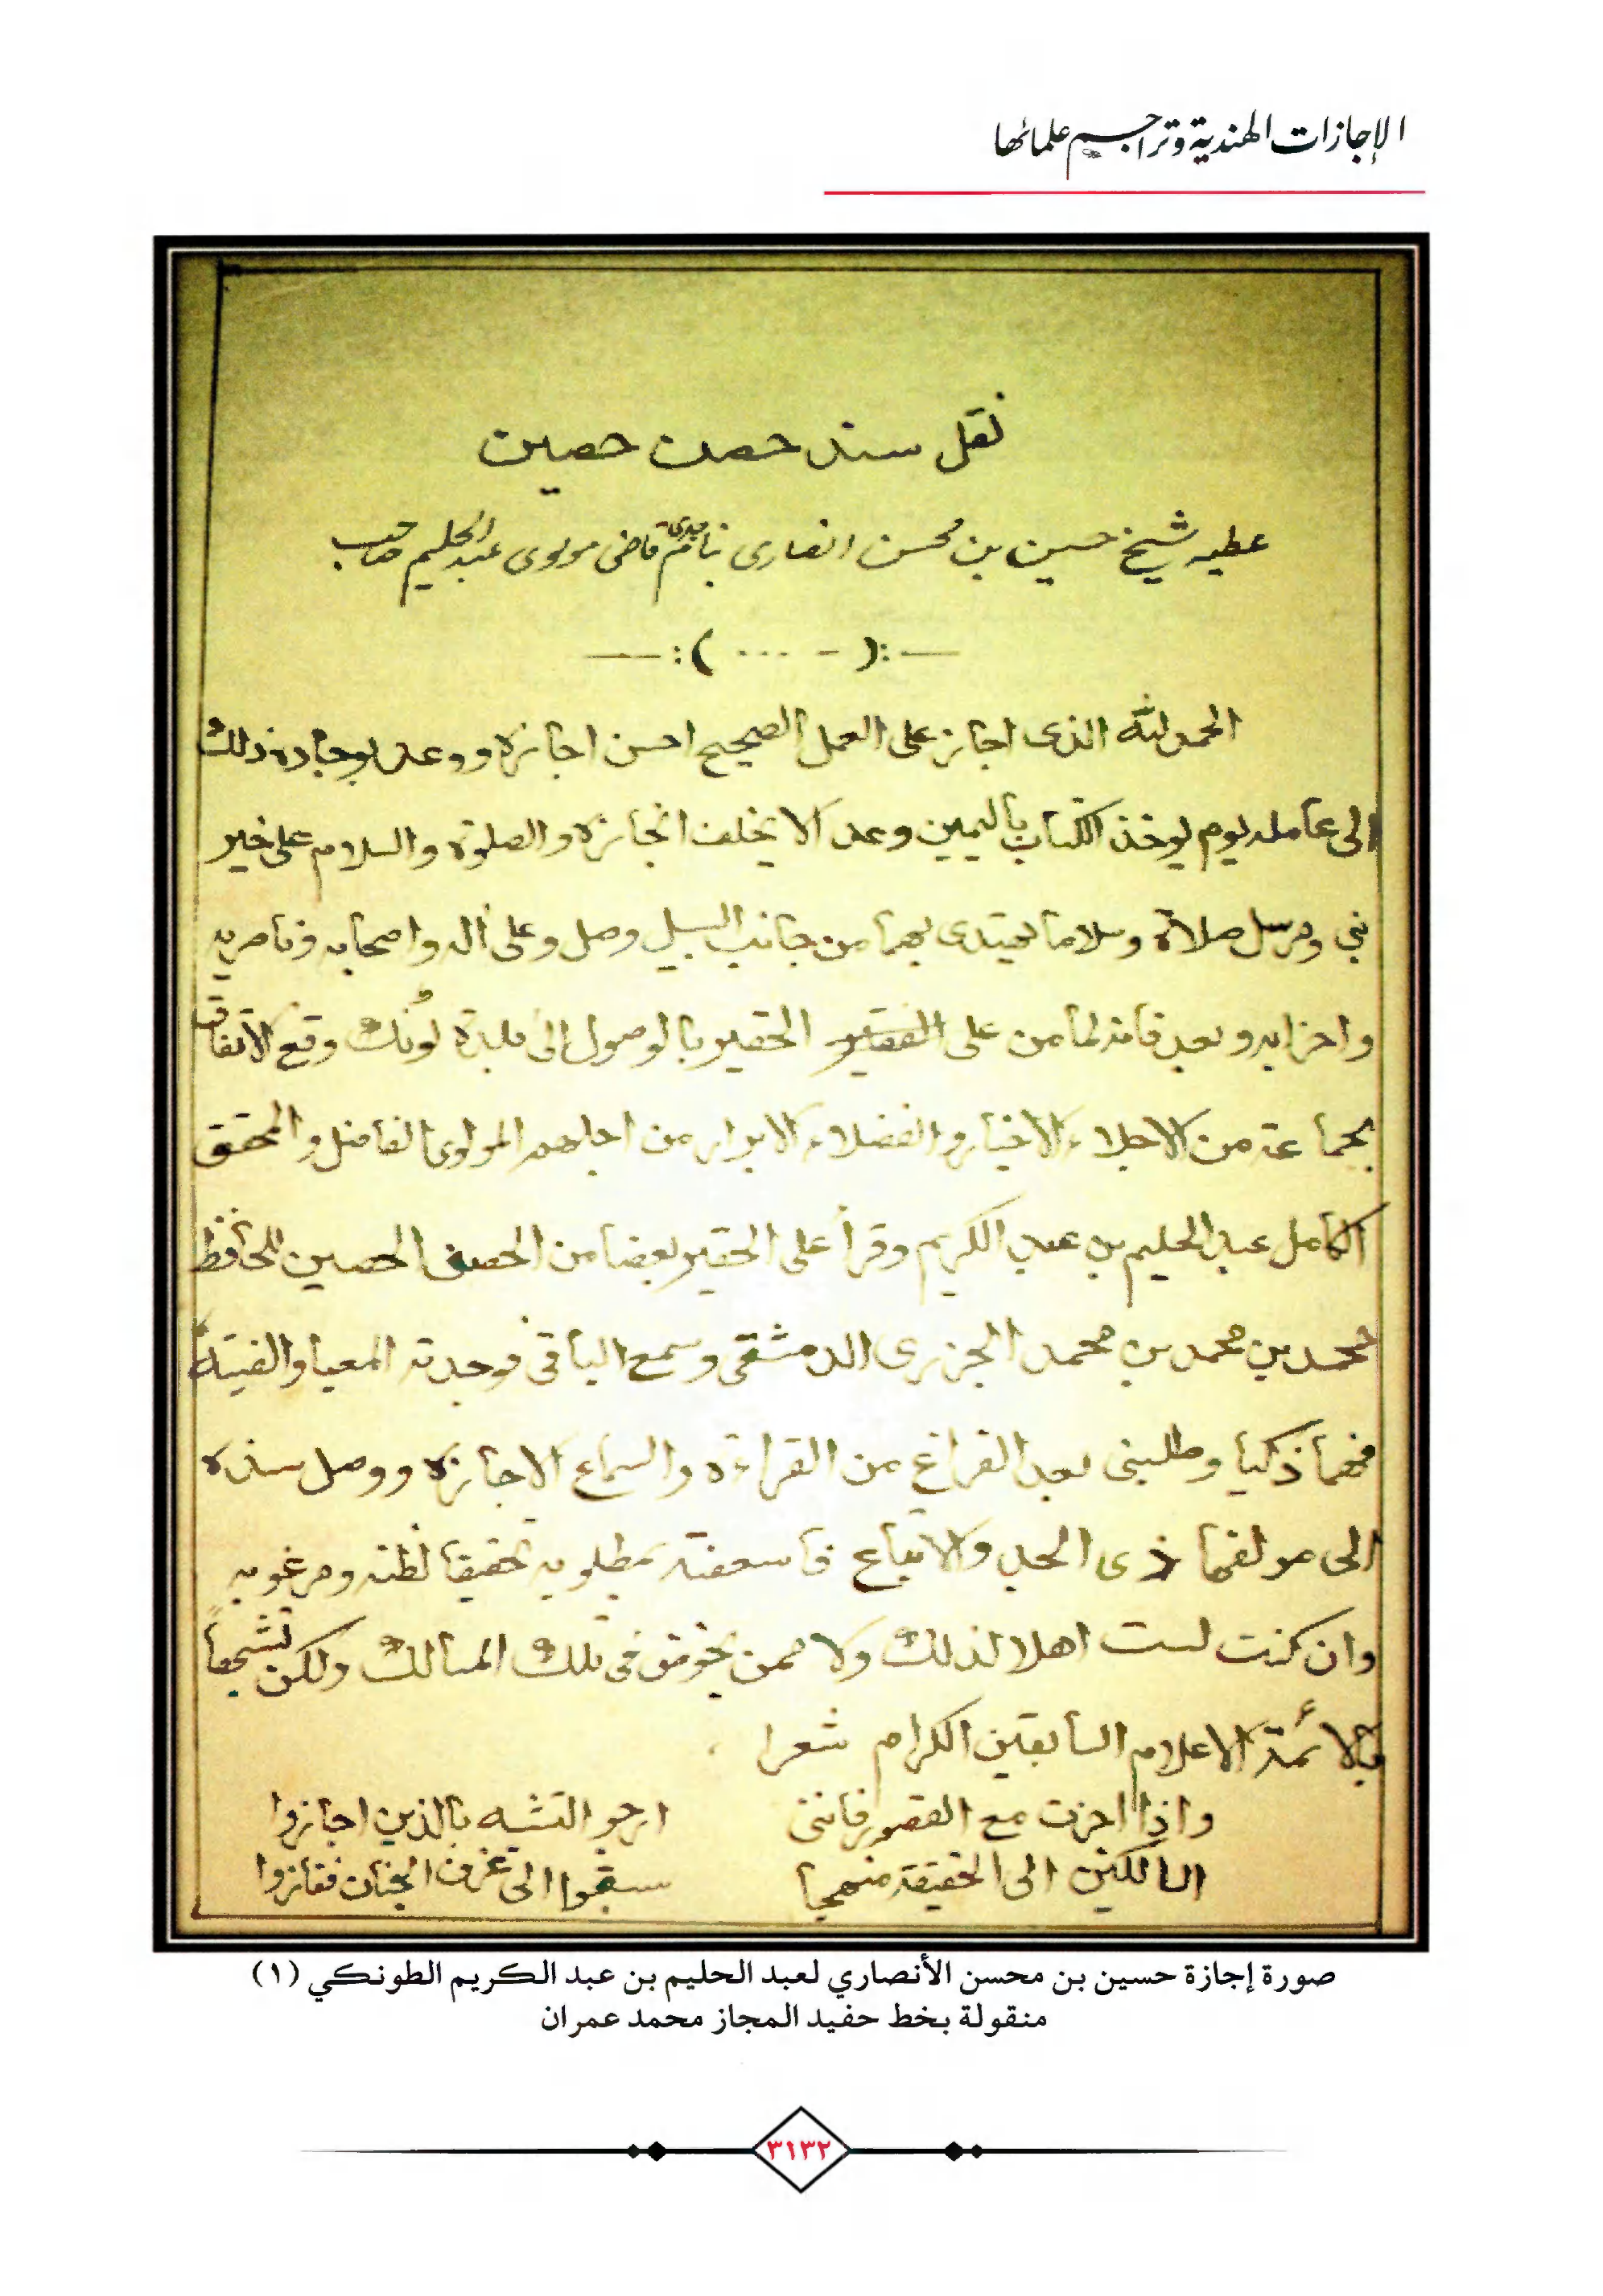 الإجازات الهندية وتراجيم علمائها
نقل سند حصن حصين
عطيه شيخ حسين بن محسن انصاری بنام جدی قاضی مولوی عبد الحلیم صاحب
—:( - ... ):—
الحمد لله الذى اجاز على العمل الصحيح احسن اجازه ووعد بوجاده ذلك
الى عامله يوم يوخذ الكتاب باليمين وعد الا يخلف انجازه والصلوة والسلام على خير
نبي ومرسل صلاة وسلاما يهتدى بهما من جانب السبيل وصل وعلى اله واصحابه وناصريه
واحزابه وبعد فانه لما من على الفقير الحقير بالوصول الى بلدة لونك وقع الاتفاق
بجماعة من الاجلاء الاخيار والفضلاء الابرار من اجلهم المولوى الفاضل والمحقق
الكامل عبد الحليم بن عبد الكريم وقرأ على الحقير بعضا من الحصن الحصين للحافظ
محمد بن محمد بن محمد الجزرى الدمشقى وسمع الباقى فوجدته المعيا والفيته
فهما ذكيا وطلبنى بعد الفراغ من القراءه والسماع الاجازه ووصل سنده
الى مولفها ذى الجد والاتباع فاسعفته بمطلوبه تحقيقا لظنه ومرغوبه
وان كنت لست اهلا لذلك ولا ممن يخوض فى تلك المسالك ولكن تشبها
بالائمة الاعلام السابقين الكرام شعرا
واذا اجزت مع القصور فاننى ارجو التشبه بالذين اجازوا
السالكين الى الحقيقة منهجا سبقوا الى غرف الجنان ففازوا
صورة إجازة حسين بن محسن الأنصاري لعبد الحليم بن عبد الكريم الطونكي (١)
منقولة بخط حفيد المجاز محمد عمران
٣١٣٢